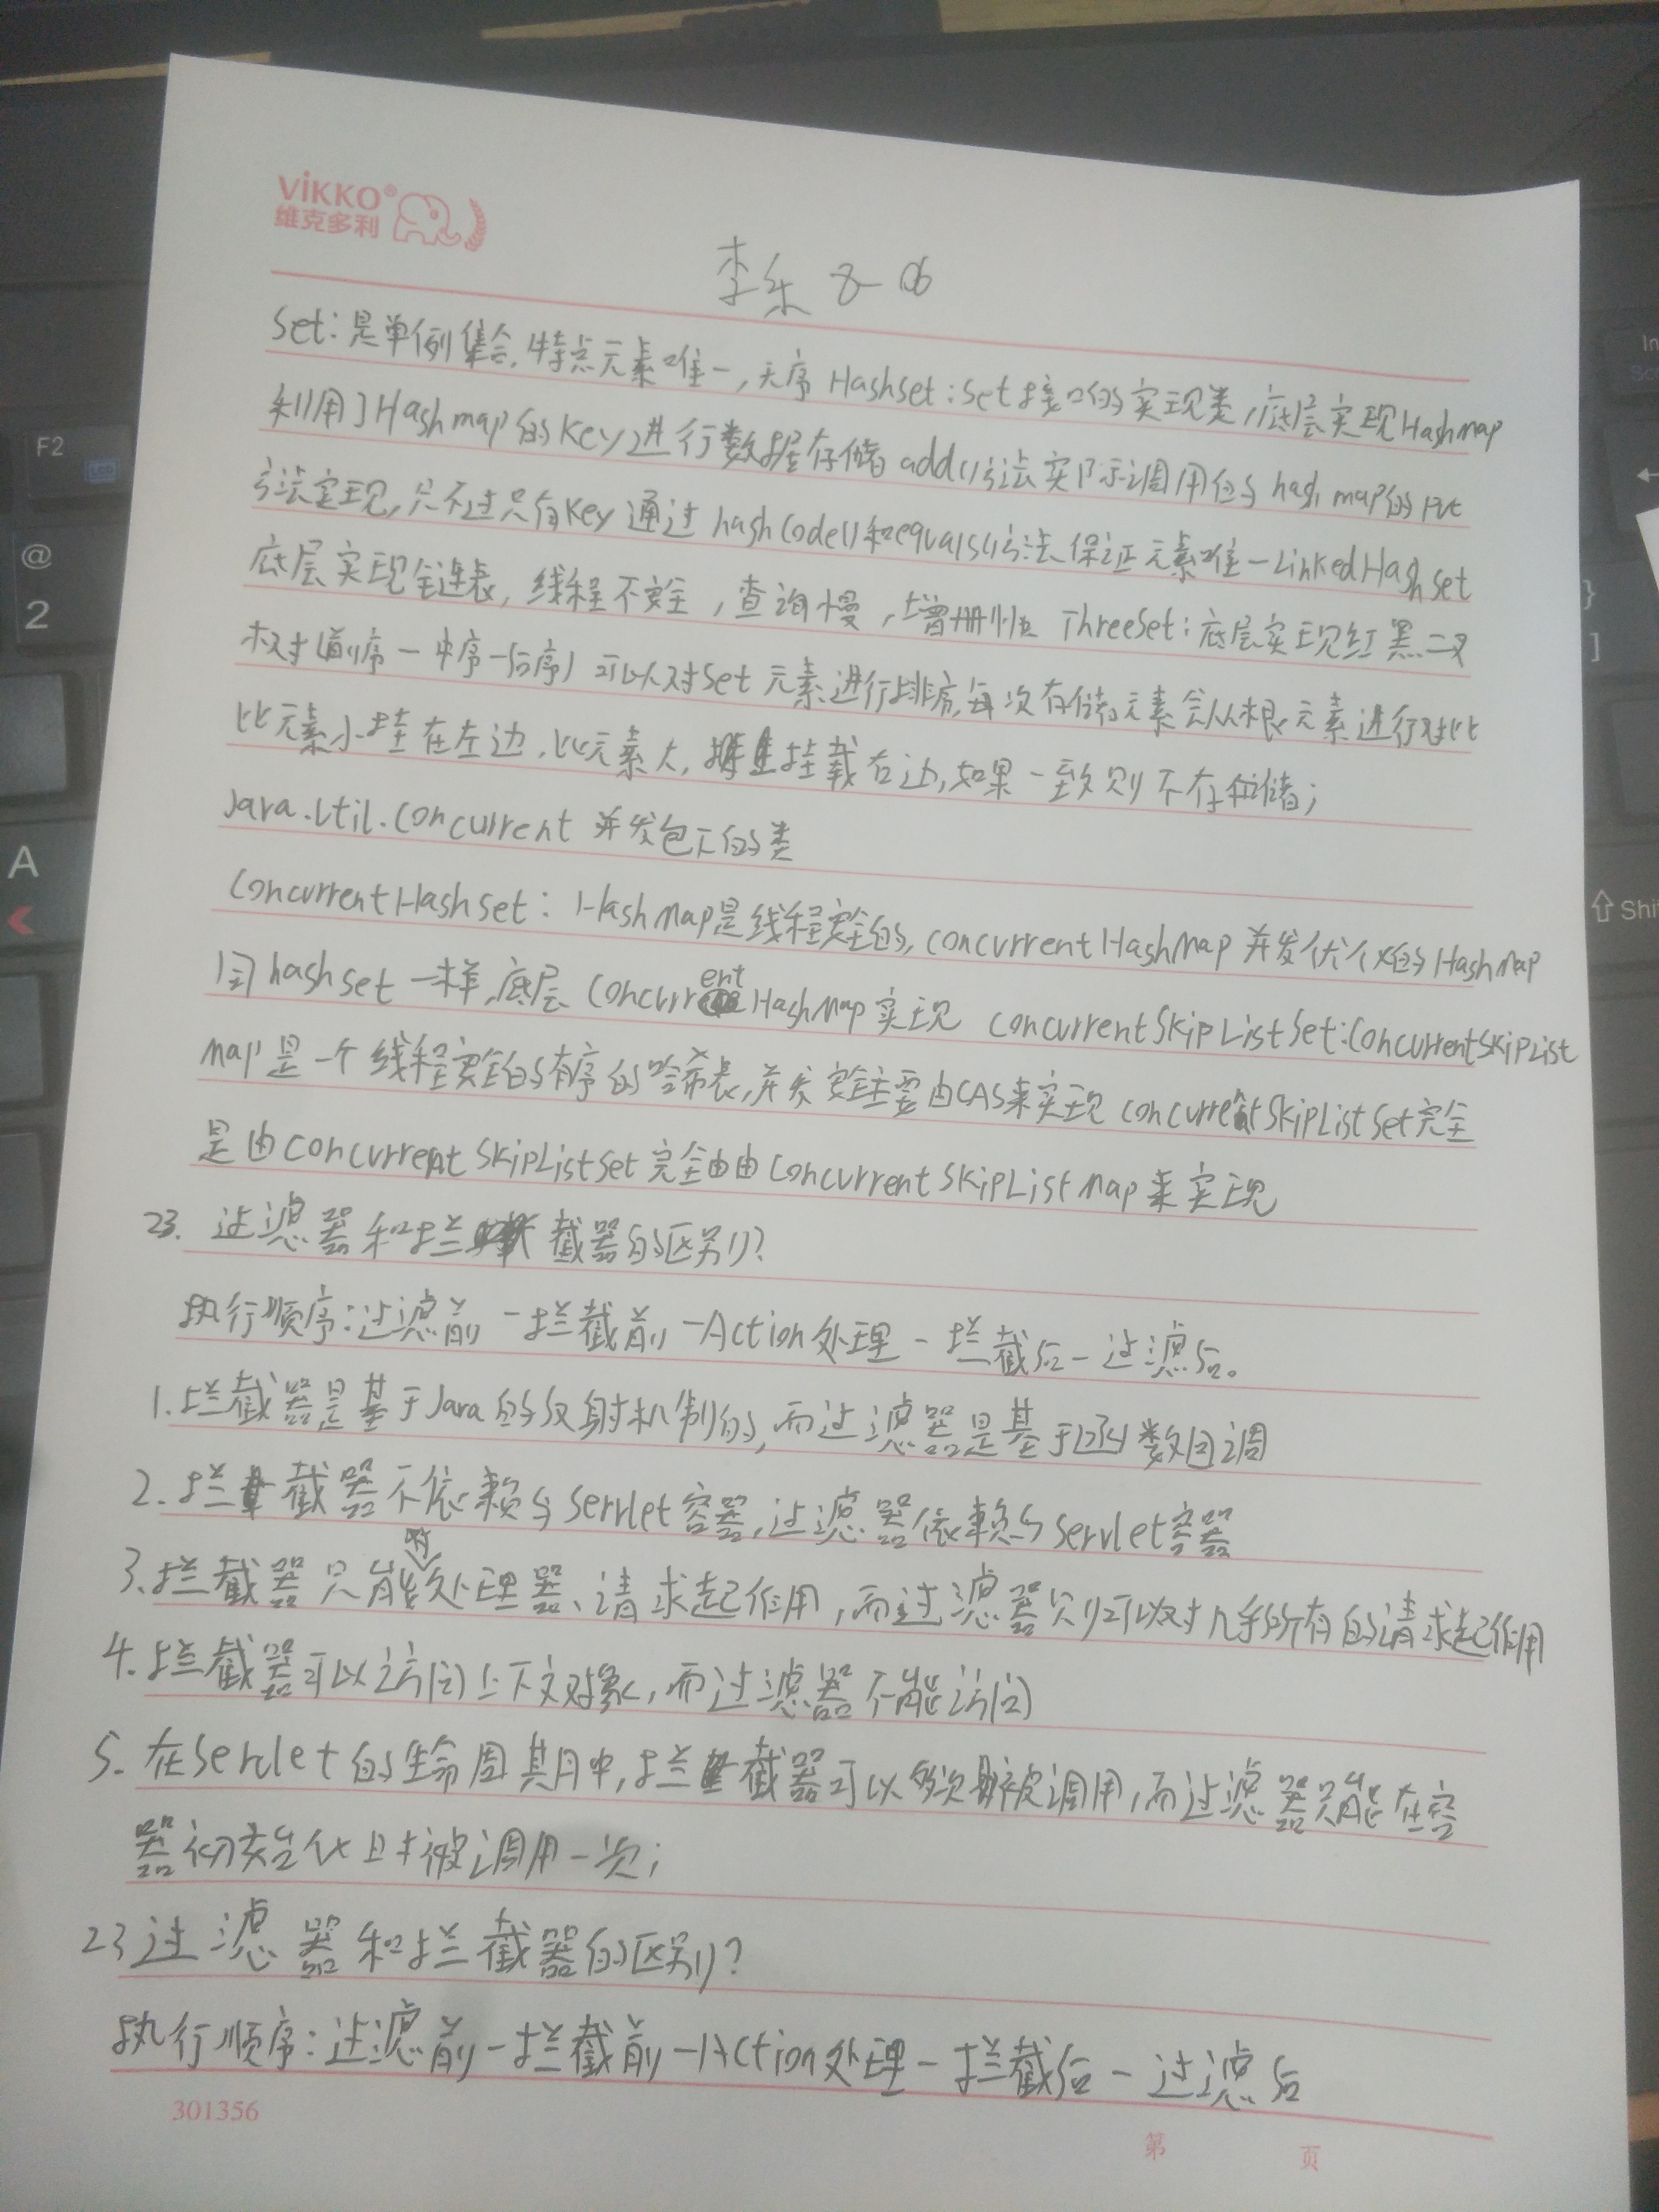 ViKKO®
维克多利
李乐 8-06
Set:是单例集合,特点元素唯一,无序 Hashset:set接口的实现类,底层实现Hashmap
利用了Hashmap的key进行数据存储 add()方法实际调用的hashmap的put
方法实现,只不过只有key 通过hashCode()和equals()方法保证元素唯一LinkedHashset
底层实现链表,线程不安全,查询慢,增删快 ThreeSet:底层实现红黑二叉
权对(前序一中序一后序)可以对set元素进行排序,每次存储元素会从根元素进行对比
比元素小挂在左边,比元素大,挂载右边,如果一致则不存储;
Java.util.concurrent 并发包下的类
ConcurrentHashset:HashMap是线程安全的,concurrentHashMap并发优化的HashMap
同hashset一样,底层ConcurrentHashMap实现 concurrentSkipListSet:ConcurrentSkipList
Map是一个线程安全的有序的哈希表,并发安全主要由CAS来实现 concurrentSkipListSet完全
是由concurrentSkipListSet完全由由concurrentSkipListMap来实现
23. 过滤器和拦截器的区别?
执行顺序:过滤前-拦截前-Action处理-拦截后-过滤后。
1.拦截器是基于Java的反射机制的,而过滤器是基于函数回调
2.拦截器不依赖与servlet容器,过滤器依赖与servlet容器
3.拦截器只能对处理器、请求起作用,而过滤器则可以对几乎所有的请求起作用
4.拦截器可以访问上下文对象,而过滤器不能访问
5.在servlet的生命周期中,拦截器可以多次被调用,而过滤器只能在容
器初始化时被调用一次;
23过滤器和拦截器的区别?
执行顺序:过滤前-拦截前-Action处理-拦截后-过滤后
301356
第 页
F2
@
2
A
}
]
⇧Shi
In
Sc